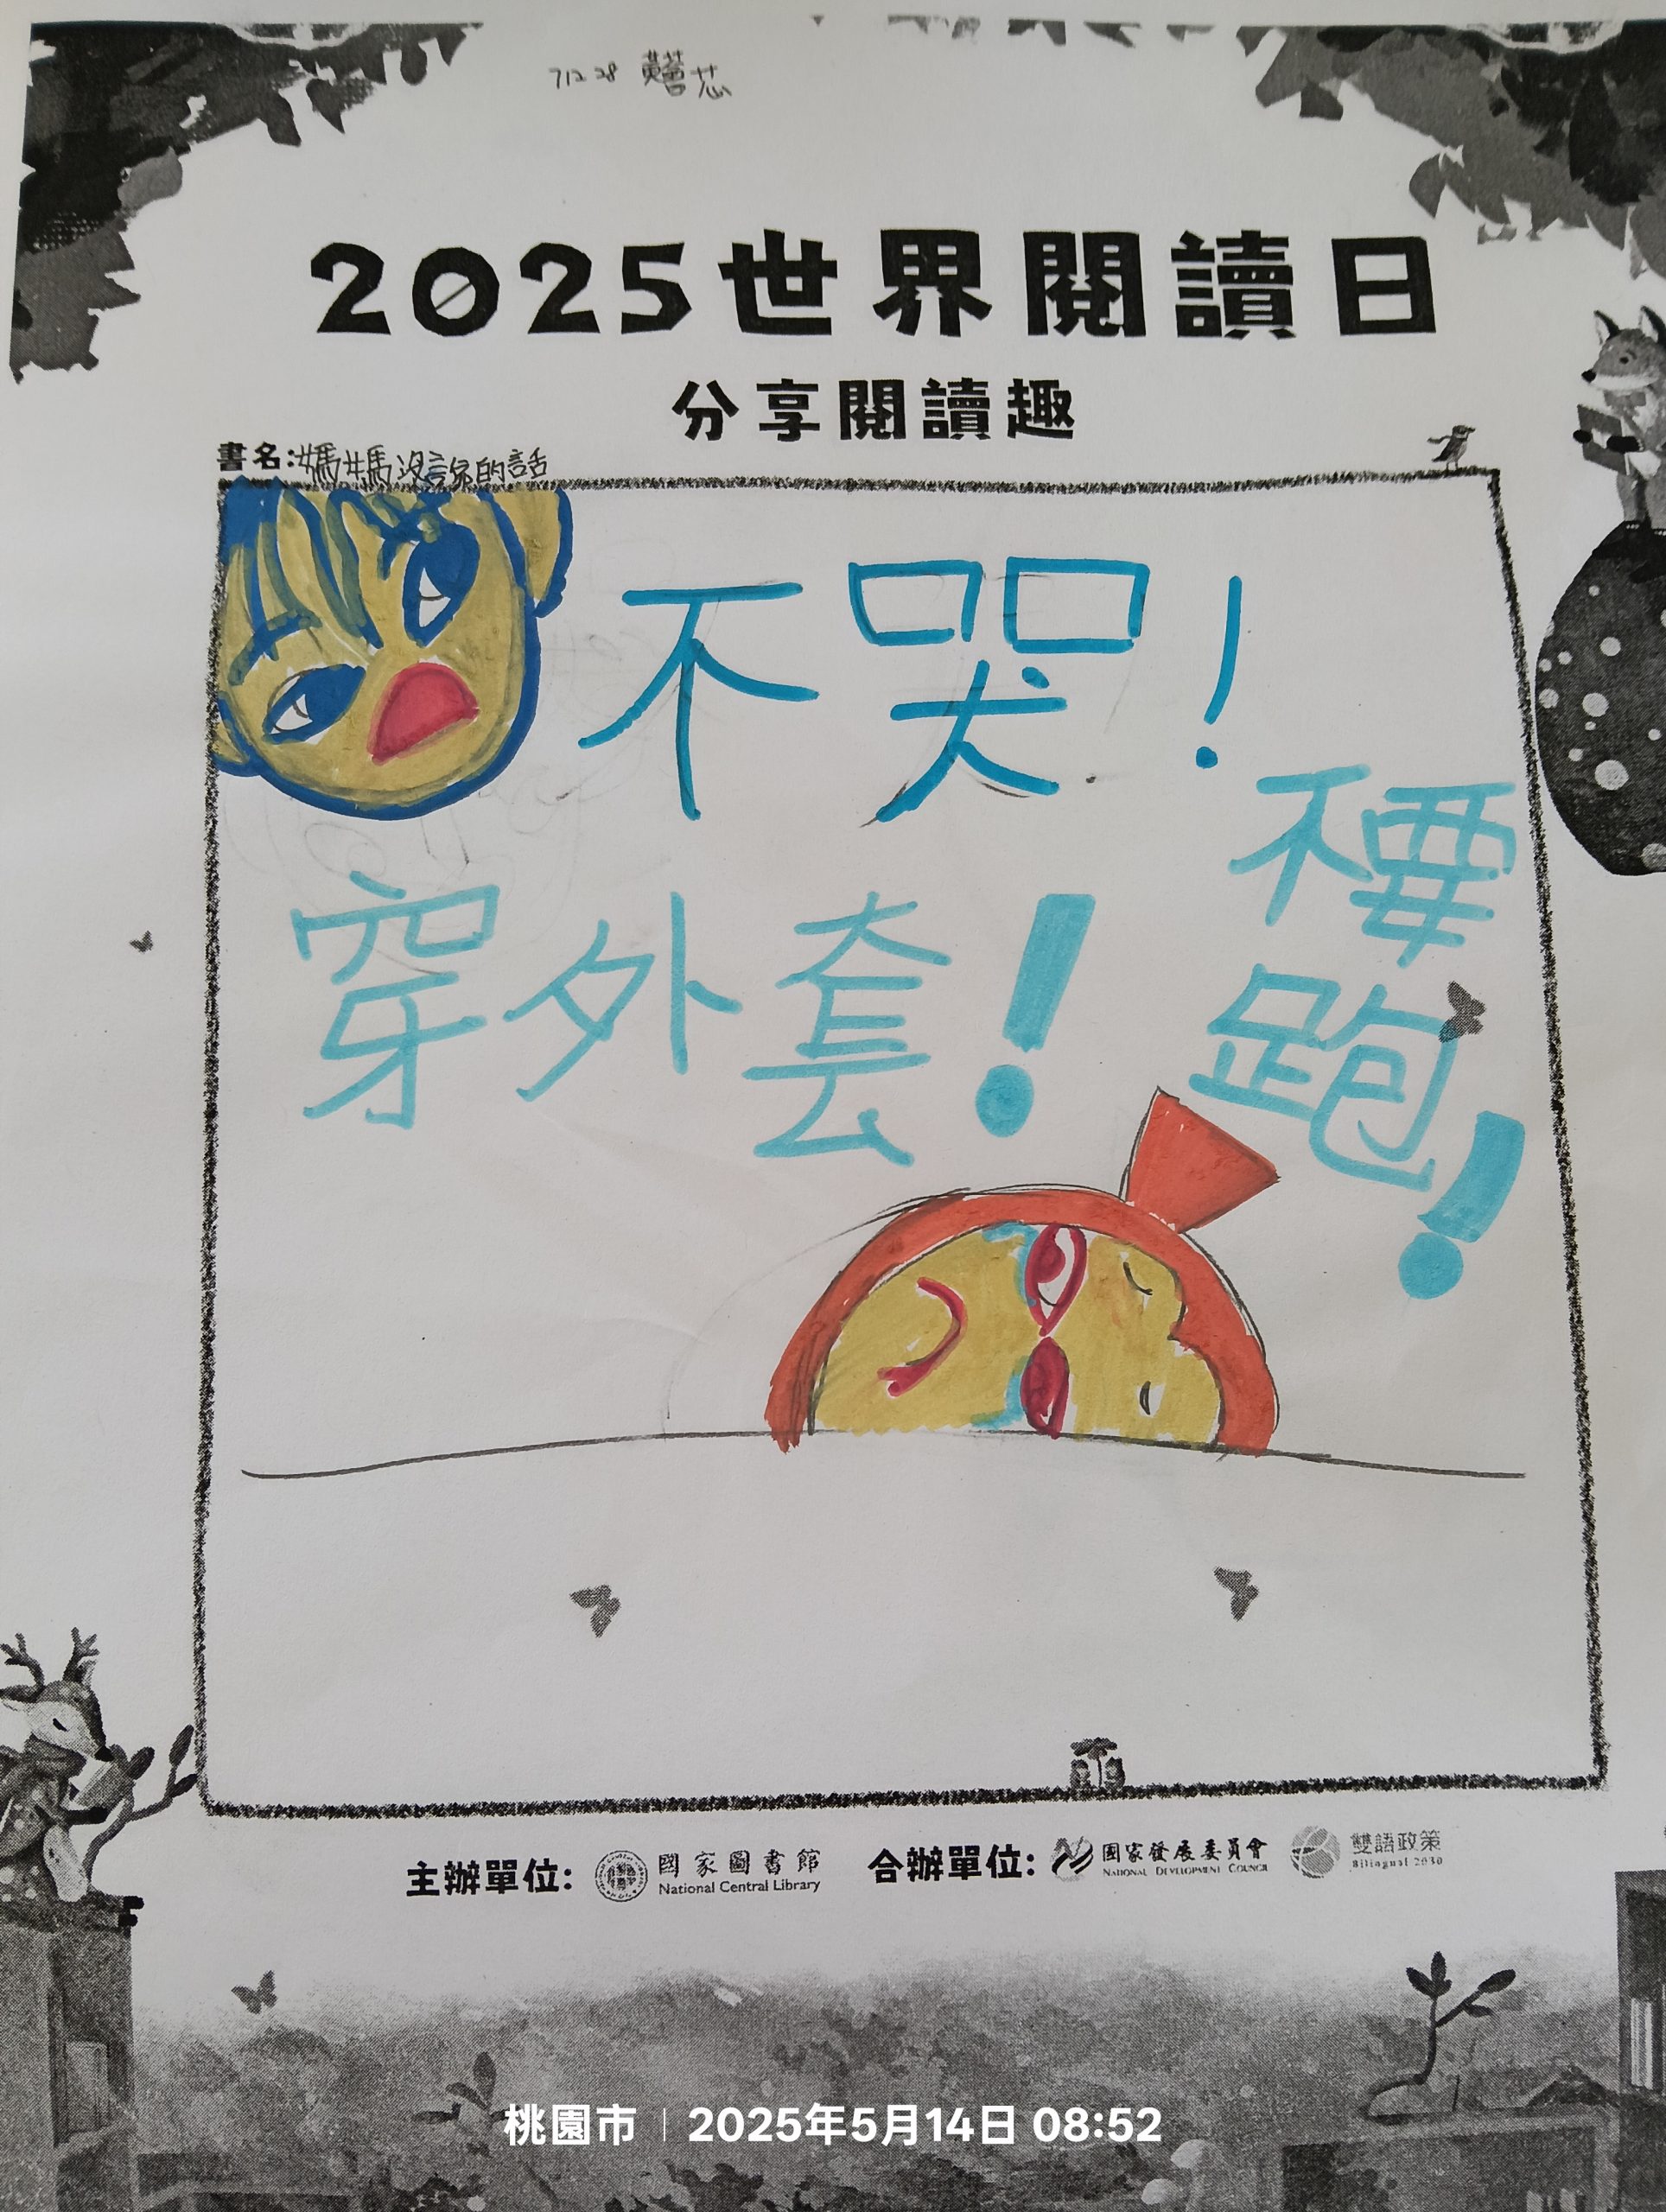 71228 黃薈芯
2025世界閱讀日
分享閱讀趣
書名:媽媽沒說的話
不哭!
不要
跑!
穿外套!
主辦單位: 國家圖書館 National Central Library 合辦單位: 國家發展委員會 National Development Council 雙語政策 Bilingual 2030
桃園市 | 2025年5月14日 08:52